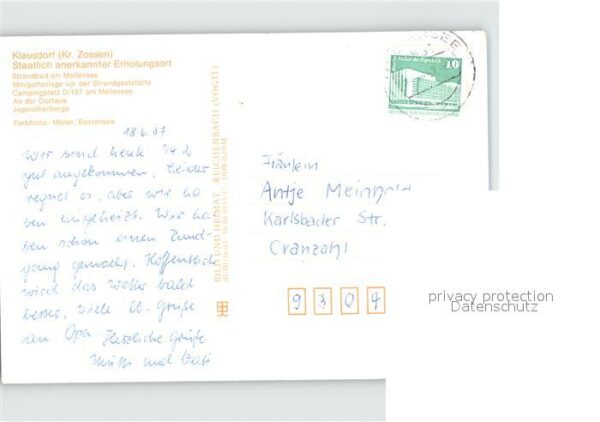 Klausdorf (Kr. Zossen)
Staatlich anerkannter Erholungsort
Strandbad am Mellensee
Minigolfanlage vor der Strandgaststätte
Campingplatz D/157 am Mellensee
An der Dorfaue
Jugendherberge
Farbfotos: Müller, Bestensee
18.6.87
Wir sind heute 1/4 2
gut angekommen, leider
regnet es, aber wir ha-
ben eingeheizt. Wir ha-
ben schon einen Rund-
gang gemacht. Hoffentlich
wird das Wetter bald
besser, viele lb. Grüße
an Opa. Herzliche Grüße
Mutti und Vati
BILD UND HEIMAT REICHENBACH (VOGTL)
Palast der Republik
10
Fräulein
Antje
Karlsbader Str.
Cranzahl
9304
privacy protection
Datenschutz